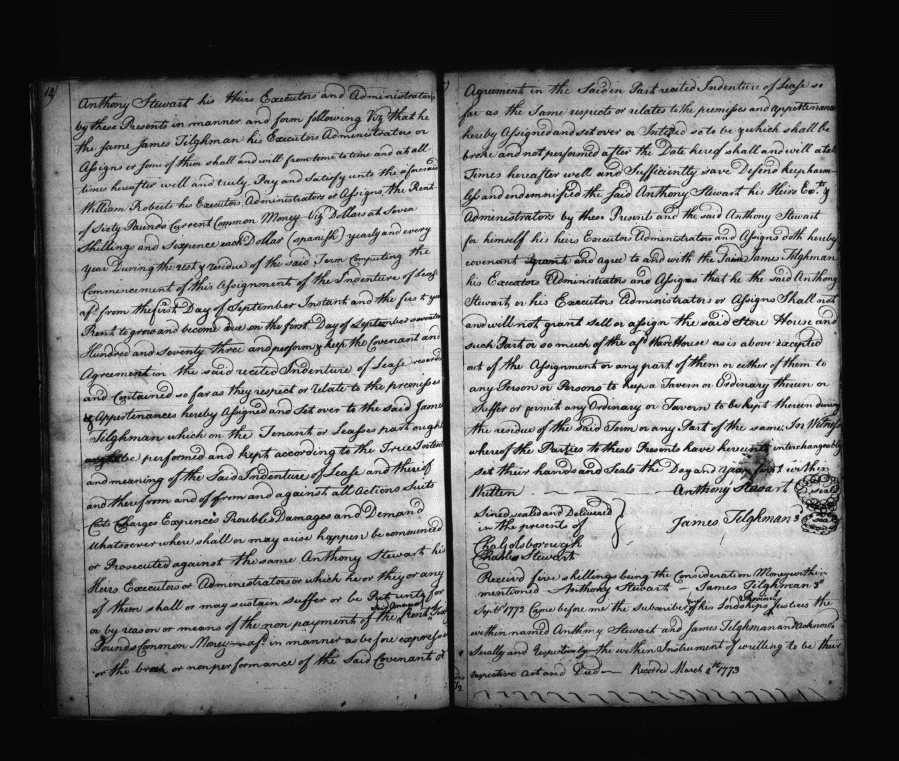 14)
Anthony Stewart his Heirs Executors and Administrators
by these Presents in manner and form following Viz that he
the same James Tilghman his Executors Administrators or
Assigns or some of them shall and will from time to time and at all
times hereafter well and truly Pay and Satisfy unto the aforesaid
William Roberts his Executors Administrators or Assigns the Rent
of Sixty Pounds Current Common Money Viz Dollars at Seven
Shillings and Sixpence each Dollar (spanish) yearly and every
year During the rest & residue of the said Term Computing the
Commencement of this Assignment of the Indenture of Lease
afd. from the first Day of September Instant and the first year
Rent to grow and become due on the first Day of September seventeen
Hundred and seventy three and perform & keep the Covenant and
Agreement in the said recited Indenture of Lease
and Contained so far as they respect or relate to the premisses
& Appertinances hereby Assigned and Set over to the said James
Tilghman which on the Tenant or Leases part ought
be performed and kept according to the True Intent
and meaning of the Said Indenture of Lease and thereif
and therefrom and of from and against all Actions Suits
Costs Charges Expences Troubles Damages and Demand
Whatsoever where shall or may arise happen be commenced
or Prosecuted against the same Anthony Stewart his
Heirs Executors or Administrators or which he or they or any
of them shall or may sustain suffer or be Put unto for
or by reason or means of the non payment of the Rent
Pounds Common Money afd. in manner as before express
or the breach or nonperformance of the Said Covenant or
Agreement in the Said in Part recited Indenture of Lease so
far as the Same respects or relates to the premises and appertenances
hereby Assigned and set over or Intended so to be & which shall be
broke and not performed after the Date hereof shall and will at all
Times hereafter well and Sufficiently save Defend keep harm
less and indemnified the said Anthony Stewart his Heirs &
Administrators by these Presents and the said Anthony Stewart
for himself his heirs Executors Administrators and Assigns doth hereby
covenant grant and agree to and with the Said James Tilghman
his Executors Administrators and Assigns that he the said Anthony
Stewart or his Executors Administrators or Assigns Shall not
and will not grant sell or assign the said Store House and
such Part or so much of the afd. Ware House as is above excepted
out of the Assignment or any part of them or either of them to
any Person or Persons to keep a Tavern or Ordinary therein or
Suffer or permit any Ordinary or Tavern to be kept therein during
the residue of the said Term or any Part of the same: In Witness
whereof the Parties to these Presents have hereunto interchangeably
set their hands and Seals the Day and year first within
Written Anthony Stewart Seal
Sined sealed and Delivered
in the presents of James Tilghman 3d Seal
Chas Golsborough
Charles Stewart
Received five shillings being the Consideration Money within
mentioned Anthony Stewart James Tilghman 3d
Sept. 1772 Came before me the Subscriber of his Lordships Provincial Justices the
within named Anthony Stewart and James Tilghman and Acknow
and respectively the within Instrument of writing to be their
respective Act and Deed Recorded March 4th 1773